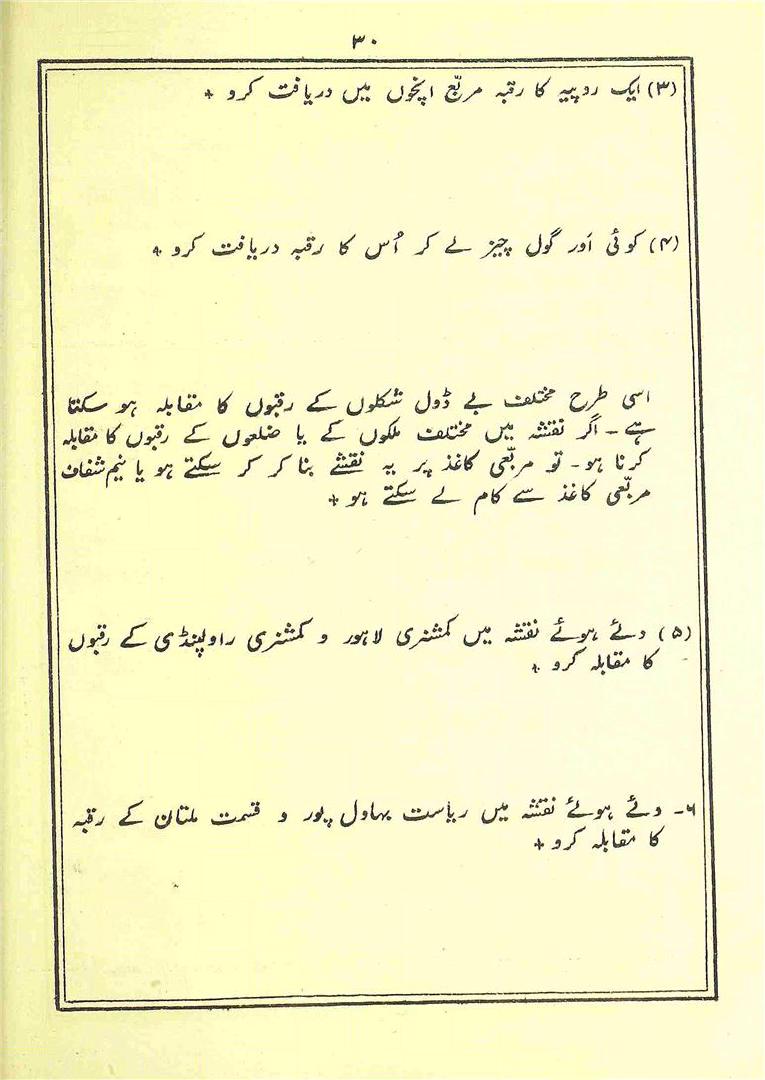 ۳۰
(۳) ایک روپیہ کا رقبہ مربّع اِنچوں میں دریافت کرو +
(۴) کوئی اَور گول چیز لے کر اُس کا رقبہ دریافت کرو +
اسی طرح مختلف بے ڈول شکلوں کے رقبوں کا مقابلہ ہو سکتا
ہے ۔ اگر نقشہ میں مختلف ملکوں کے یا ضلعوں کے رقبوں کا مقابلہ
کرنا ہو ۔ تو مربّعی کاغذ پر یہ نقشے بنا کر کر سکتے ہو یا نیم شفاف
مربّعی کاغذ سے کام لے سکتے ہو +
(۵) دئے ہوئے نقشہ میں کمشنری لاہور و کمشنری راولپنڈی کے رقبوں
کا مقابلہ کرو +
۶۔ دئے ہوئے نقشہ میں ریاست بہاول پور و قسمت ملتان کے رقبہ
کا مقابلہ کرو +